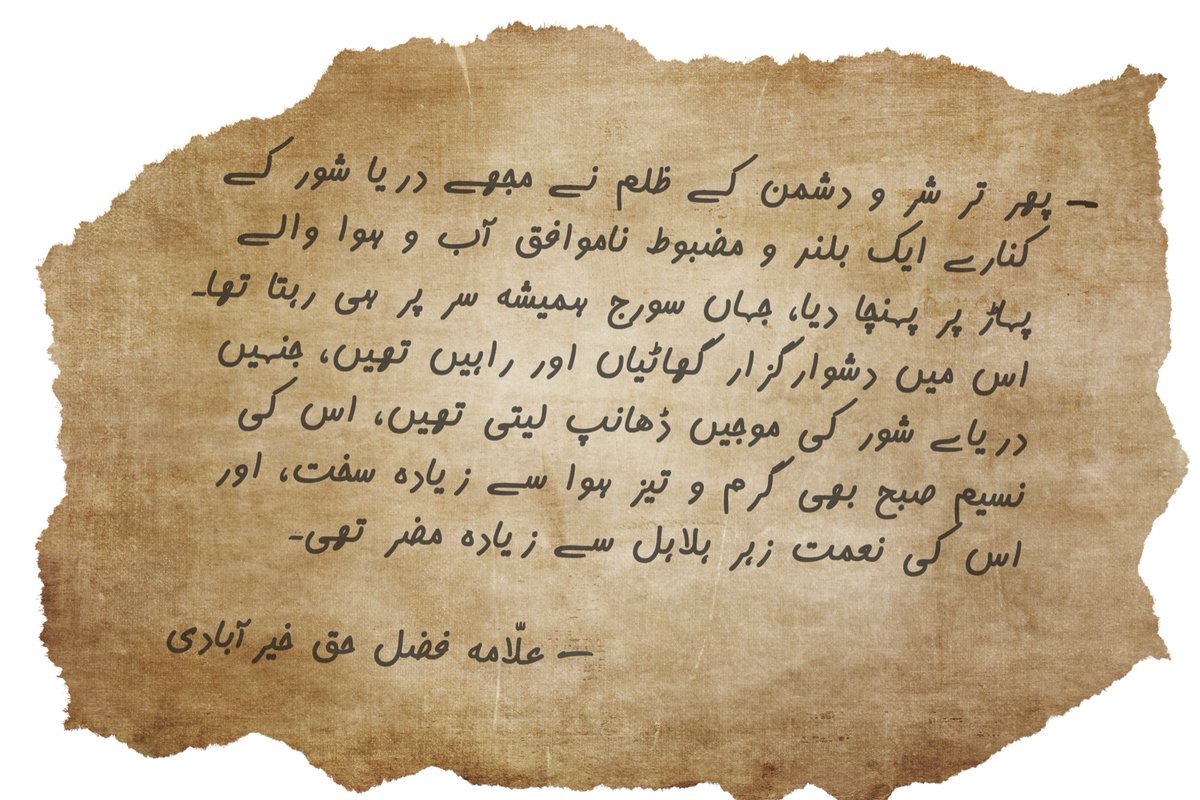 — پھر تر شر و دشمن کے ظلم نے مجھے دریا شور کے
کنارے ایک بلند و مضبوط ناموافق آب و ہوا والے
پہاڑ پر پہنچا دیا، جہاں سورج ہمیشہ سر پر ہی رہتا تھا۔
اس میں دشوار گزار گھاٹیاں اور راہیں تھیں، جنہیں
دریاے شور کی موجیں ڈھانپ لیتی تھیں، اس کی
نسیم صبح بھی گرم و تیز ہوا سے زیادہ سخت، اور
اس کی نعمت زہر ہلاہل سے زیادہ مضر تھی۔
— علّامہ فضل حق خیر آبادی